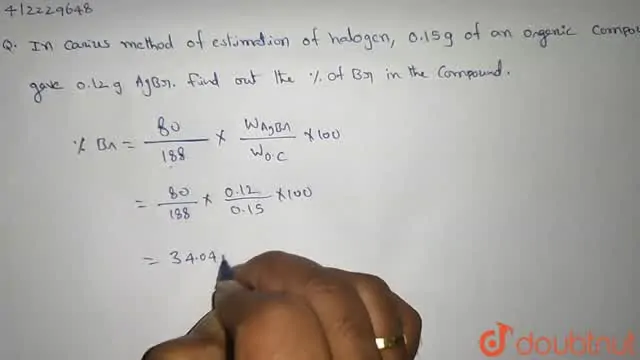 412229648
Q. In carius method of estimation of halogen, 0.15g of an organic compou
gave 0.12g AgBr. Find out the % of Br in the Compound.
% Br = 80/188 × WAgBr/WO.C × 100
= 80/188 × 0.12/0.15 × 100
= 34.04
doubtnut